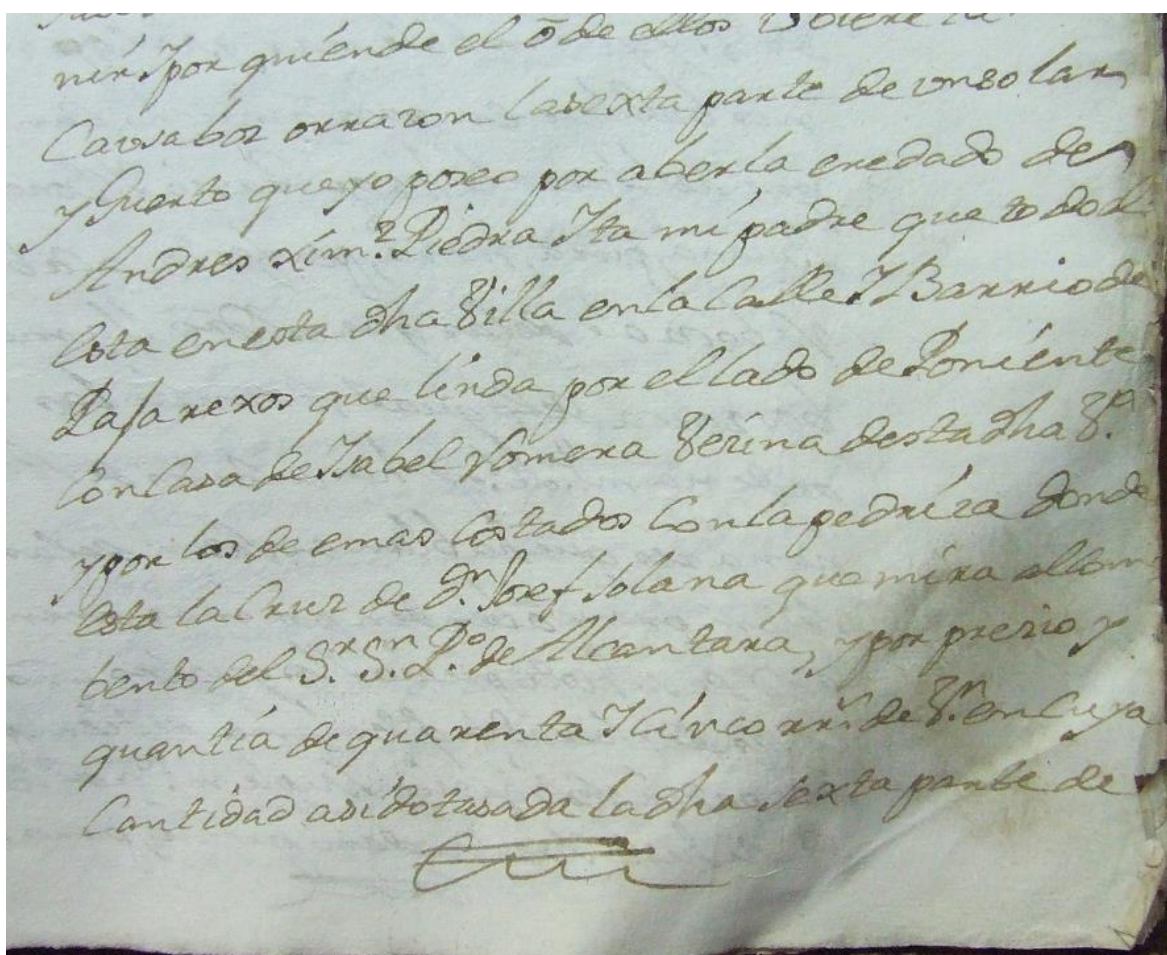 nir Y por quien de el o de ellos Vbiere
Causa boz o rrazon la sexta parte de vn solar
y Guerto que yo poseo por aberla eredado de
Andres Xim.z Piedra Yta mi padre que todo
Esta en esta dha Billa en la Calle Y Barrio de
Pajarexos que linda por el lado de Poniente
Con Casa de Isabel Romera Vezina desta dha V.a
y por los de emas Costados Con la pedriza donde
Esta la Cruz de D.n Josef Solana que mira al Com
bento del S.r S.n P.o de Alcantara, y por prezio y
quantia de quarenta Y Cinco rr.s de V.n en Cuya
Cantidad a sido tasada la dha sexta parte de